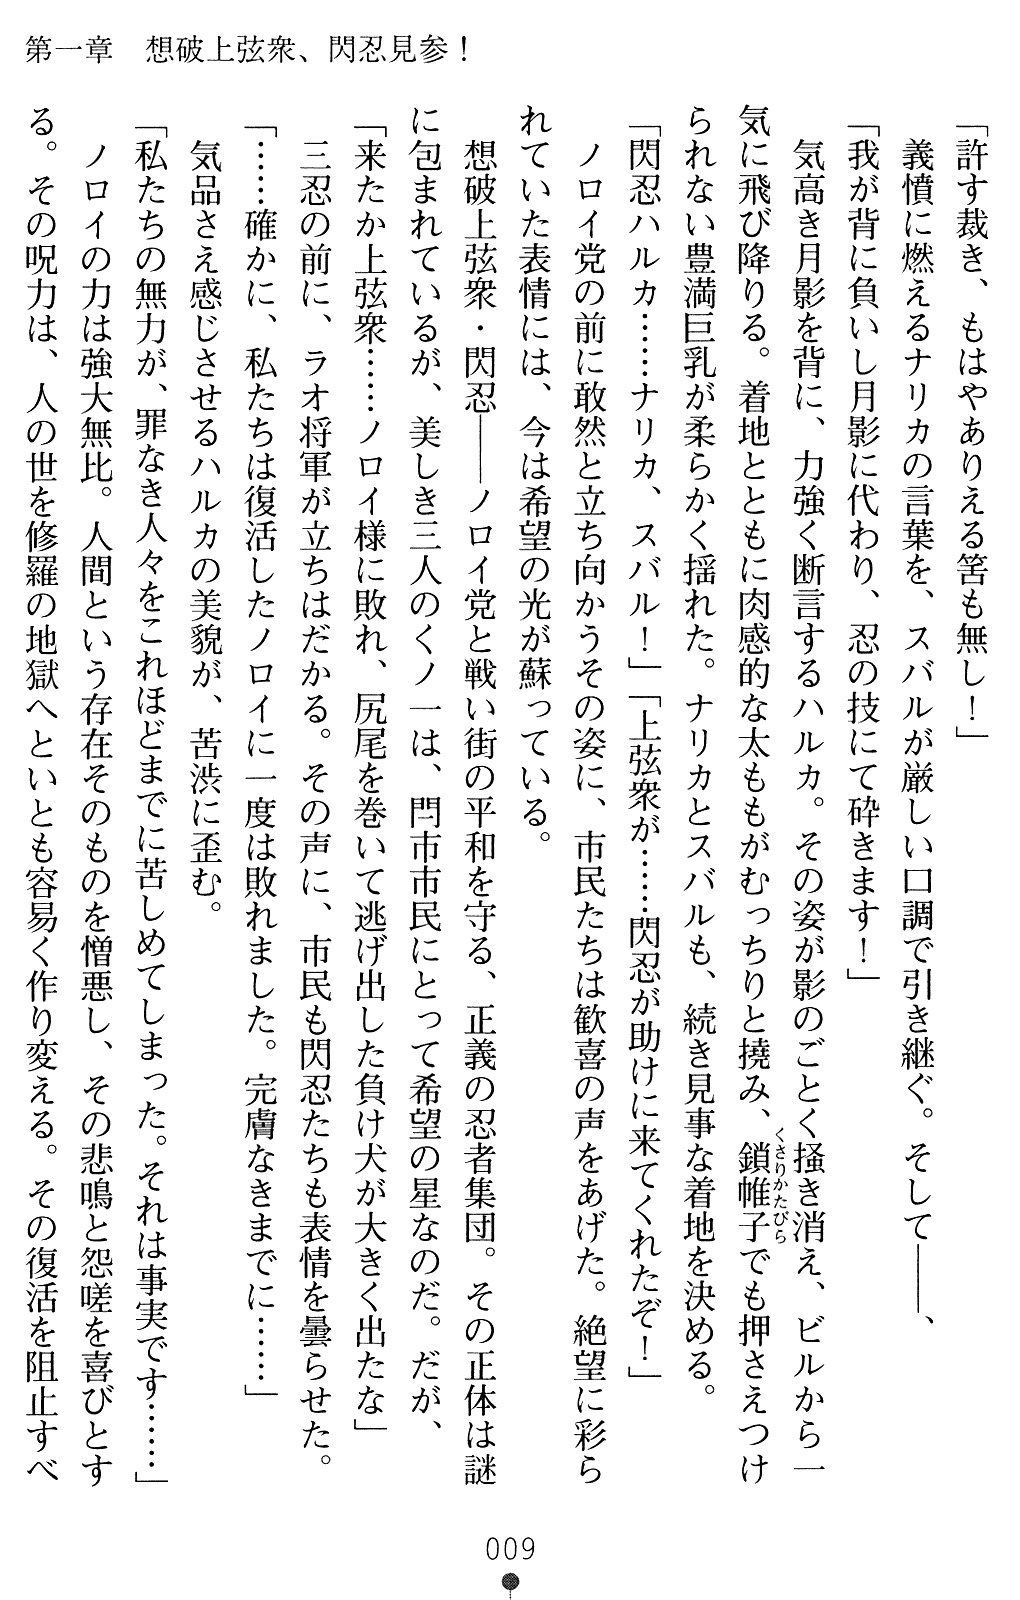 第一章　想破上弦衆、閃忍見参！
「許す裁き、もはやありえる筈も無し！」
　義憤に燃えるナリカの言葉を、スバルが厳しい口調で引き継ぐ。そして――、
「我が背に負いし月影に代わり、忍の技にて砕きます！」
　気高き月影を背に、力強く断言するハルカ。その姿が影のごとく掻き消え、ビルから一
気に飛び降りる。着地とともに肉感的な太ももがむっちりと撓み、鎖帷子でも押さえつけ
くさりかたびら
られない豊満巨乳が柔らかく揺れた。ナリカとスバルも、続き見事な着地を決める。
「閃忍ハルカ……ナリカ、スバル！」「上弦衆が……閃忍が助けに来てくれたぞ！」
　ノロイ党の前に敢然と立ち向かうその姿に、市民たちは歓喜の声をあげた。絶望に彩ら
れていた表情には、今は希望の光が蘇っている。
　想破上弦衆・閃忍――ノロイ党と戦い街の平和を守る、正義の忍者集団。その正体は謎
に包まれているが、美しき三人のくノ一は、閂市市民にとって希望の星なのだ。だが、
「来たか上弦衆……ノロイ様に敗れ、尻尾を巻いて逃げ出した負け犬が大きく出たな」
　三忍の前に、ラオ将軍が立ちはだかる。その声に、市民も閃忍たちも表情を曇らせた。
「……確かに、私たちは復活したノロイに一度は敗れました。完膚なきまでに……」
　気品さえ感じさせるハルカの美貌が、苦渋に歪む。
「私たちの無力が、罪なき人々をこれほどまでに苦しめてしまった。それは事実です……」
　ノロイの力は強大無比。人間という存在そのものを憎悪し、その悲鳴と怨嗟を喜びとす
る。その呪力は、人の世を修羅の地獄へといとも容易く作り変える。その復活を阻止すべ
009